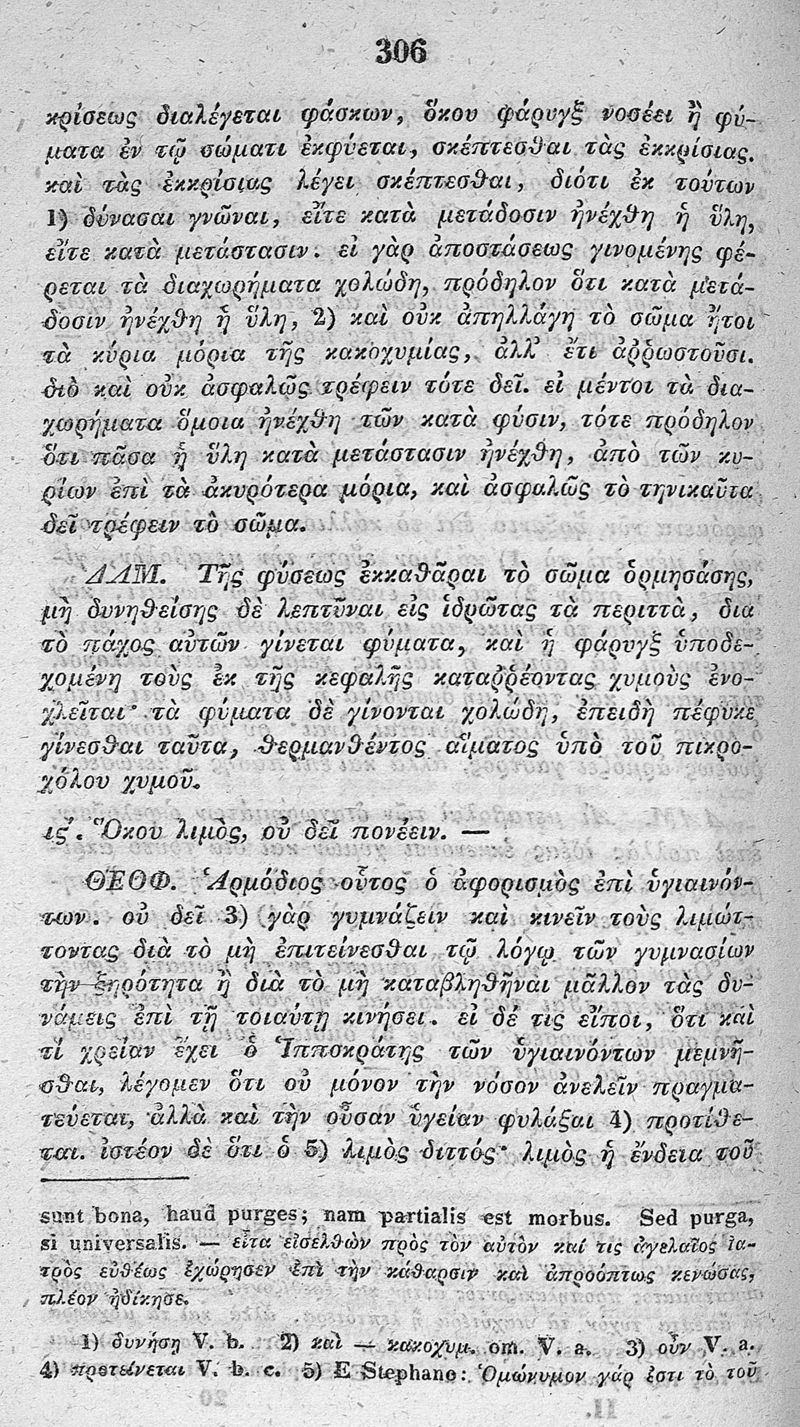 306
κρίσεως διαλέγεται φάσκων, ὅκου φάρυγξ νοσέει ἢ φύ-
ματα ἐν τῷ σώματι ἐκφύεται, σκέπτεσθαι τὰς ἐκκρίσιας.
καὶ τὰς ἐκκρίσιας λέγει σκέπτεσθαι, διότι ἐκ τούτων
1) δύνασαι γνῶναι, εἴτε κατὰ μετάδοσιν ἠνέχθη ἡ ὕλη,
εἴτε κατὰ μετάστασιν. εἰ γὰρ ἀποστάσεως γινομένης φέ-
ρεται τὰ διαχωρήματα χολώδη, πρόδηλον ὅτι κατὰ μετά-
δοσιν ἠνέχθη ἡ ὕλη, 2) καὶ οὐκ ἀπηλλάγη τὸ σῶμα ἤτοι
τὰ κύρια μόρια τῆς κακοχυμίας, ἀλλ’ ἔτι ἀῤῥωστοῦσι.
διὸ καὶ οὐκ ἀσφαλῶς τρέφειν τότε δεῖ. εἰ μέντοι τὰ δια-
χωρήματα ὅμοια ἠνέχθη τῶν κατὰ φύσιν, τότε πρόδηλον
ὅτι πᾶσα ἡ ὕλη κατὰ μετάστασιν ἠνέχθη, ἀπὸ τῶν κυ-
ρίων ἐπὶ τὰ ἀκυρότερα μόρια, καὶ ἀσφαλῶς τὸ τηνικαῦτα
δεῖ τρέφειν τὸ σῶμα.
ΔΑΜ. Τῆς φύσεως ἐκκαθᾶραι τὸ σῶμα ὁρμησάσης,
μὴ δυνηθείσης δὲ λεπτῦναι εἰς ἱδρῶτας τὰ περιττὰ, δια
τὸ πάχος αὐτῶν γίνεται φύματα, καὶ ἡ φάρυγξ ὑποδε-
χομένη τοὺς ἐκ τῆς κεφαλῆς καταῤῥέοντας χυμοὺς ἐνο-
χλεῖται· τὰ φύματα δὲ γίνονται χολώδη, ἐπειδὴ πέφυκε
γίνεσθαι ταῦτα, θερμανθέντος αἵματος ὑπὸ τοῦ πικρο-
χόλου χυμοῦ.
ις΄. Ὅκου λιμὸς, οὐ δεῖ πονέειν. —
ΘΕΟΦ. Ἁρμόδιος οὗτος ὁ ἀφορισμὸς ἐπὶ ὑγιαινόν-
των. οὐ δεῖ 3) γὰρ γυμνάζειν καὶ κινεῖν τοὺς λιμώτ-
τοντας διὰ τὸ μὴ ἐπιτείνεσθαι τῷ λόγῳ τῶν γυμνασίων
τὴν ξηρότητα ἢ διὰ τὸ μὴ καταβληθῆναι μᾶλλον τὰς δυ-
νάμεις ἐπὶ τῇ τοιαύτῃ κινήσει. εἰ δέ τις εἴποι, ὅτι καὶ
τί χρείαν ἔχει ὁ Ἱπποκράτης τῶν ὑγιαινόντων μεμνῆ-
σθαι, λέγομεν ὅτι οὐ μόνον τὴν νόσον ἀνελεῖν πραγμα-
τεύεται, ἀλλὰ καὶ τὴν οὖσαν ὑγείαν φυλάξαι 4) προτίθε-
ται. ἰστέον δὲ ὅτι ὁ 5) λιμὸς διττός· λιμὸς ἡ ἔνδεια τοῦ
sunt bona, haud purges; nam partialis est morbus. Sed purga,
si universalis. — εἶτα εἰσελθὼν πρὸς τὸν αὐτὸν καί τις ἀγελαῖος ἰα-
τρὸς εὐθέως ἐχώρησεν ἐπὶ τὴν κάθαρσιν καὶ ἀπροόπτως κενώσας,
πλέον ἠδίκησε.
1) δυνήσῃ V. b. 2) καὶ — κακοχυμ. om. V. a. 3) οὖν V. a.
4) προτείνεται V. b. c. 5) E Stephano: Ὁμώνυμον γάρ ἐστι τὸ τοῦ